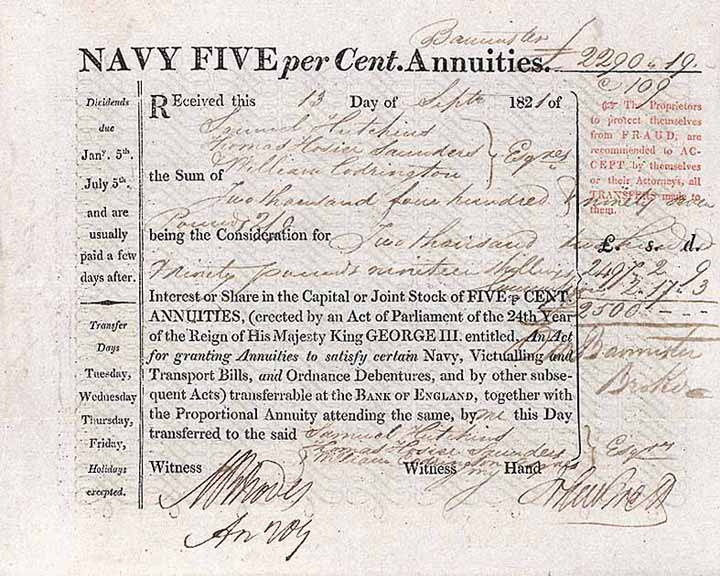 Bannister
NAVY FIVE per Cent. Annuities.
£2290 " 19.
@ 109
Dividends
due
Jany. 5th.
July 5th.
and are
usually
paid a few
days after.
Transfer
Days
Tuesday,
Wednesday
Thursday,
Friday,
Holidays
excepted.
REceived this 13 Day of Septr 1821 of
Samuel Hitchens
Thomas Hosier Saunders
& William Codrington
Esqres
the Sum of
Two thousand four hundred & ninety seven
Pounds 2/9
being the Consideration for Two thousand two hundred
Ninety pounds nineteen Shillings
Interest or Share in the Capital or Joint Stock of FIVE p CENT.
ANNUITIES, (erected by an Act of Parliament of the 24th Year
of the Reign of His Majesty King GEORGE III. entitled, An Act
for granting Annuities to satisfy certain Navy, Victualling and
Transport Bills, and Ordnance Debentures, and by other subse-
quent Acts) transferrable at the BANK OF ENGLAND, together with
the Proportional Annuity attending the same, by me this Day
transferred to the said Samuel Hitchens
Thomas Hosier Saunders
& William Codrington
Esqres
Witness Witness my Hand
☞ The Proprietors
to protect themselves
from FRAUD, are
recommended to AC-
CEPT by themselves
or their Attorneys, all
TRANSFERS made to
them.
£. s. d.
2497 2 9
2. 17. 3
2500 - -
Bannister
Broker